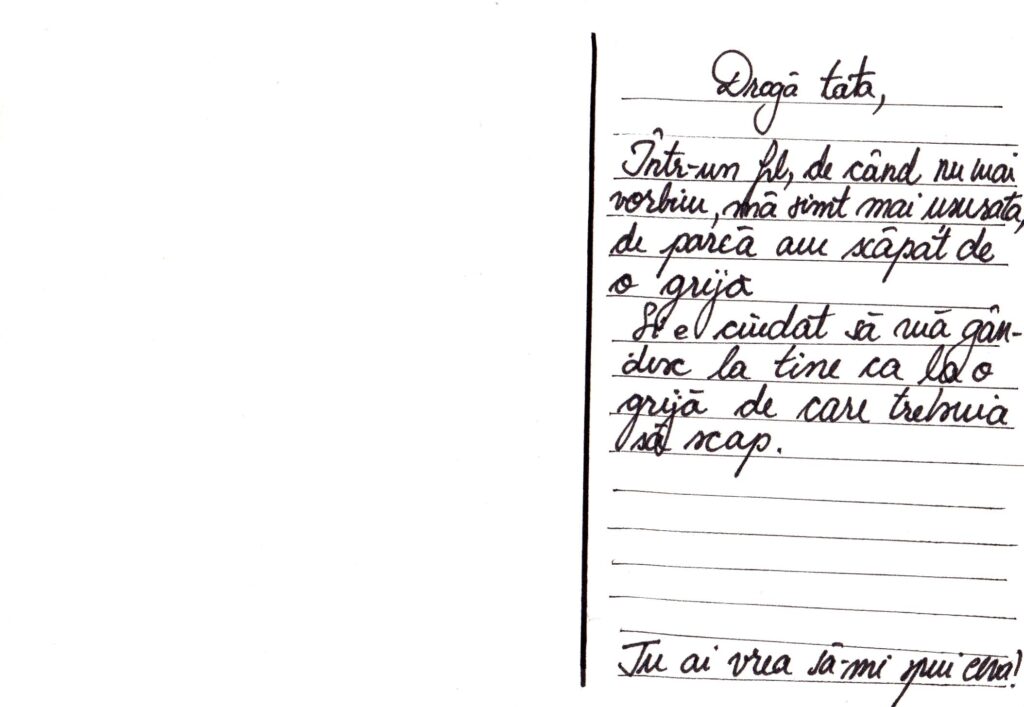 Dragă tata,
Într-un fel, de când nu mai
vorbim, mă simt mai ușurata,
de parcă am scăpat de
o grija
Și e ciudat să mă gân-
desc la tine ca la o
grijă de care trebuia
să scap.
Tu ai vrea să-mi spui ceva?